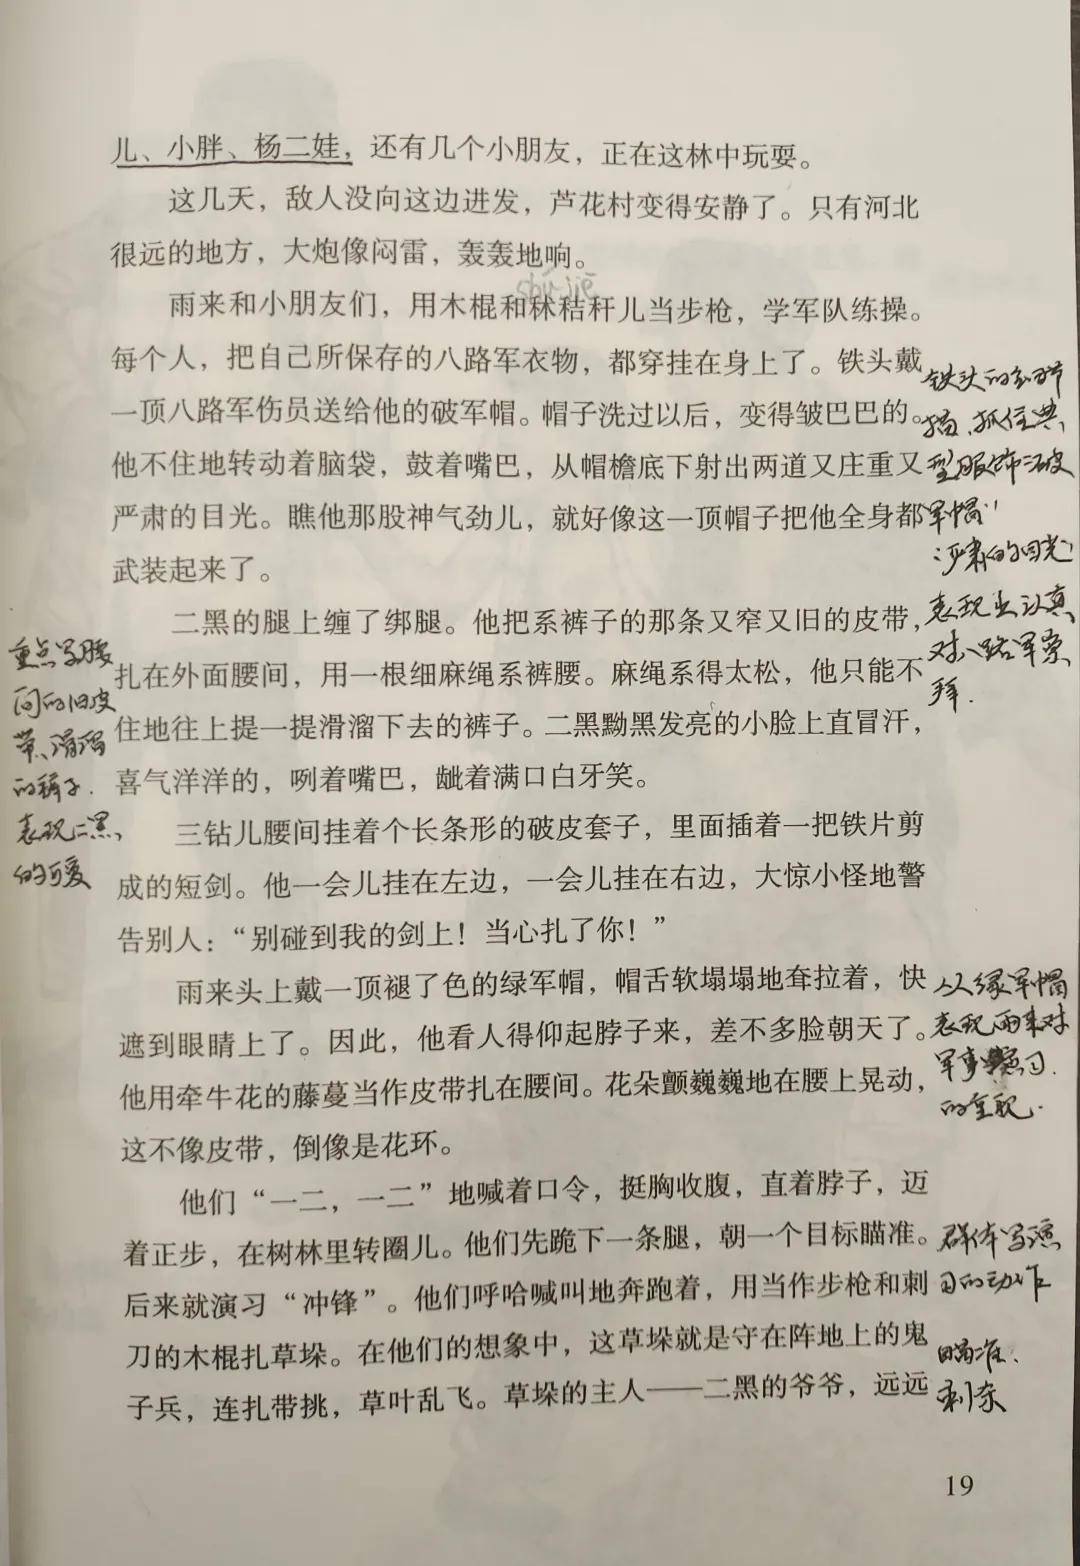 儿、小胖、杨二娃，还有几个小朋友，正在这林中玩耍。
这几天，敌人没向这边进发，芦花村变得安静了。只有河北
很远的地方，大炮像闷雷，轰轰地响。
shú jiē
雨来和小朋友们，用木棍和秫秸秆儿当步枪，学军队练操。
每个人，把自己所保存的八路军衣物，都穿挂在身上了。铁头戴
一顶八路军伤员送给他的破军帽。帽子洗过以后，变得皱巴巴的。
他不住地转动着脑袋，鼓着嘴巴，从帽檐底下射出两道又庄重又
严肃的目光。瞧他那股神气劲儿，就好像这一顶帽子把他全身都
武装起来了。
铁头的
描，抓住典
型服饰“破
军帽”
“严肃的目光”
表现出认真、
对八路军崇
拜．
二黑的腿上缠了绑腿。他把系裤子的那条又窄又旧的皮带，
扎在外面腰间，用一根细麻绳系裤腰。麻绳系得太松，他只能不
住地往上提一提滑溜下去的裤子。二黑黝黑发亮的小脸上直冒汗，
喜气洋洋的，咧着嘴巴，龇着满口白牙笑。
重点写腰
间的旧皮
带、滑溜
的裤子．
表现二黑
的可爱
三钻儿腰间挂着个长条形的破皮套子，里面插着一把铁片剪
成的短剑。他一会儿挂在左边，一会儿挂在右边，大惊小怪地警
告别人：“别碰到我的剑上！当心扎了你！”
雨来头上戴一顶褪了色的绿军帽，帽舌软塌塌地耷拉着，快
遮到眼睛上了。因此，他看人得仰起脖子来，差不多脸朝天了。
他用牵牛花的藤蔓当作皮带扎在腰间。花朵颤巍巍地在腰上晃动，
这不像皮带，倒像是花环。
从绿军帽
表现雨来对
军事演习．
的重视．
他们“一二，一二”地喊着口令，挺胸收腹，直着脖子，迈
着正步，在树林里转圈儿。他们先跪下一条腿，朝一个目标瞄准。
后来就演习“冲锋”。他们呼哈喊叫地奔跑着，用当作步枪和刺
刀的木棍扎草垛。在他们的想象中，这草垛就是守在阵地上的鬼
子兵，连扎带挑，草叶乱飞。草垛的主人——二黑的爷爷，远远
群体写演
习的动作
瞄准．
刺杀
19